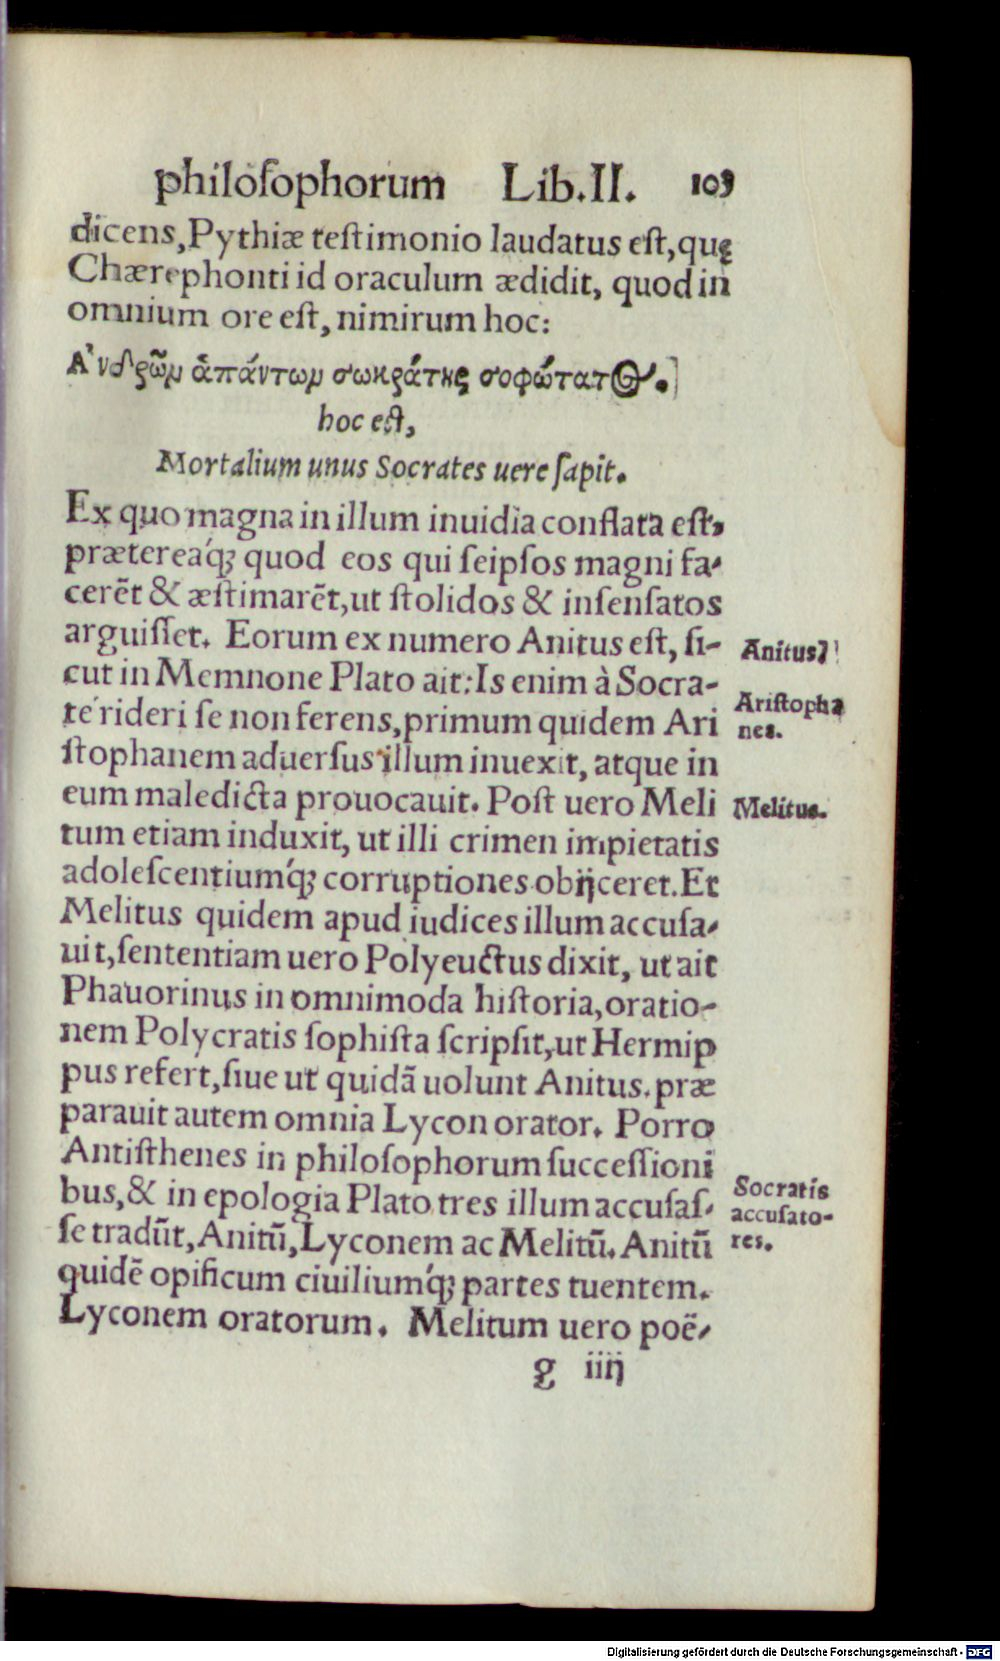 philosophorum Lib.II. 103
dicens,Pythiæ testimonio laudatus est,quę
Chærephonti id oraculum ædidit, quod in
omnium ore est, nimirum hoc:
Α᾽νδρῶμ ἁπάντωμ σωκράτης σοφώτατος.
hoc est,
Mortalium unus Socrates uere sapit.
Ex quo magna in illum inuidia conflata est,
prætereaq́; quod eos qui seipsos magni fa-
cerēt & æstimarēt,ut stolidos & insensatos
arguisset. Eorum ex numero Anitus est, si-
Anitus.
cut in Memnone Plato ait:Is enim à Socra-
te rideri se non ferens,primum quidem Ari
Aristopha
nes.
stophanem aduersus illum inuexit, atque in
eum maledicta prouocauit. Post uero Meli
Melitus.
tum etiam induxit, ut illi crimen impietatis
adolescentiumq́; corruptiones obijceret.Et
Melitus quidem apud iudices illum accusa-
uit,sententiam uero Polyeuctus dixit, ut ait
Phauorinus in omnimoda historia,oratio-
nem Polycratis sophista scripsit,ut Hermip
pus refert,siue ut quidā uolunt Anitus.præ
parauit autem omnia Lycon orator. Porro
Antisthenes in philosophorum successioni
bus,& in epologia Plato tres illum accusas-
Socratis
accusato-
res.
se tradūt,Anitū,Lyconem ac Melitū.Anitū
quidē opificum ciuiliumq́; partes tuentem.
Lyconem oratorum. Melitum uero poë-
g iiij
Digitalisierung gefördert durch die Deutsche Forschungsgemeinschaft - DFG